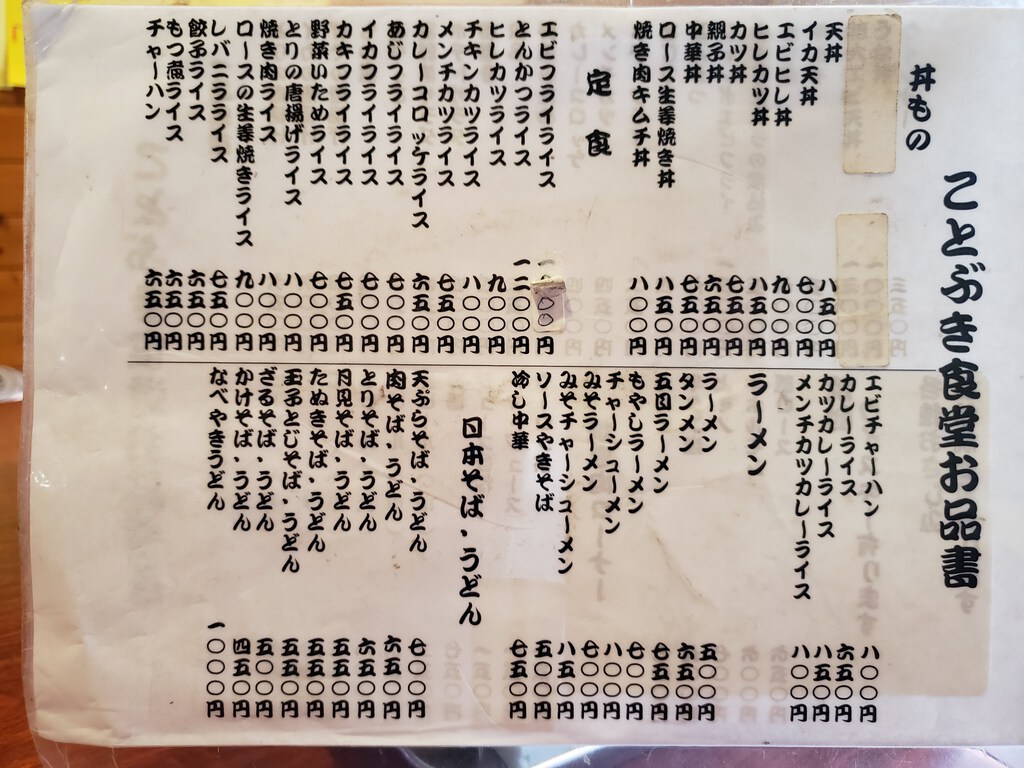 ことぶき食堂お品書
丼もの
天丼 八五〇円
イカ天丼 七〇〇円
エビヒレ丼 九〇〇円
ヒレカツ丼 八五〇円
カツ丼 七五〇円
親子丼 六五〇円
中華丼 七五〇円
ロース生姜焼き丼 八五〇円
焼き肉キムチ丼 八〇〇円
定食
エビフライライス
とんかつライス 一二〇〇円
ヒレカツライス 九〇〇円
チキンカツライス 八〇〇円
メンチカツライス 七五〇円
カレーコロッケライス 六五〇円
あじフライライス 七〇〇円
イカフライライス 七〇〇円
カキフライライス 七五〇円
野菜いためライス 七〇〇円
とりの唐揚げライス 八〇〇円
焼き肉ライス 八〇〇円
ロースの生姜焼きライス 九〇〇円
レバニラライス 七五〇円
餃子ライス 六五〇円
もつ煮ライス 六五〇円
チャーハン 六五〇円
エビチャーハン 八〇〇円
カレーライス 六五〇円
カツカレーライス 八五〇円
メンチカツカレーライス 八〇〇円
ラーメン
ラーメン 五〇〇円
タンメン 六五〇円
五目ラーメン 七五〇円
もやしラーメン 七〇〇円
チャーシューメン 八〇〇円
みそラーメン 七〇〇円
みそチャーシューメン 八五〇円
ソースやきそば 五〇〇円
冷し中華 七五〇円
日本そば・うどん
天ぷらそば・うどん 七〇〇円
肉そば・うどん 六五〇円
とりそば・うどん 六五〇円
月見そば・うどん 五五〇円
たぬきそば・うどん 五五〇円
玉子とじそば・うどん 五五〇円
ざるそば・うどん 五〇〇円
かけそば・うどん 四五〇円
なべやきうどん 一〇〇〇円